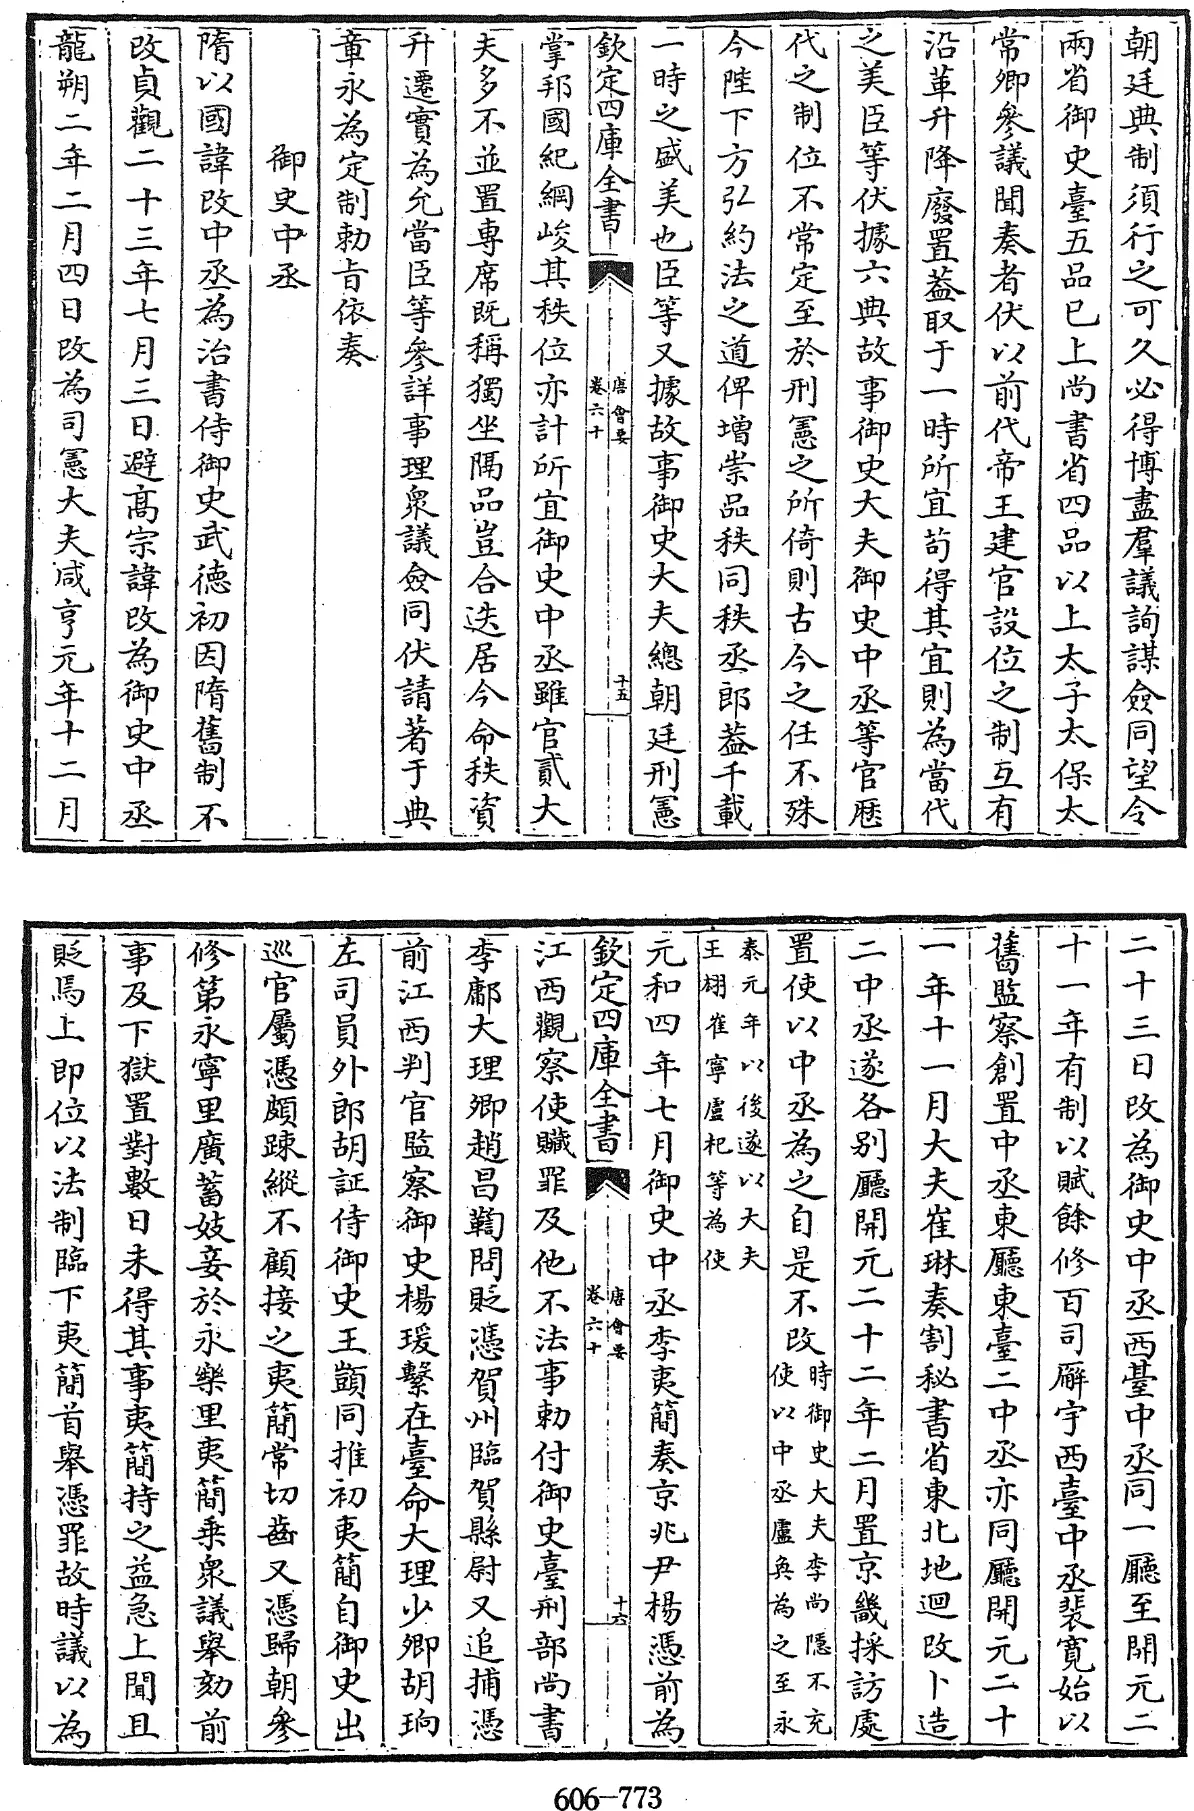 朝廷典制須行之可久必得博盡羣議詢謀僉同望令
兩省御史臺五品已上尚書省四品以上太子太保太
常卿參議聞奏者伏以前代帝王建官設位之制互有
沿革升降廢置蓋取于一時所宜苟得其宜則為當代
之美臣等伏據六典故事御史大夫御史中丞等官歷
代之制位不常定至於刑憲之所倚則古今之任不殊
今陛下方弘約法之道俾增崇品秩同秩丞郎蓋千載
一時之盛美也臣等又據故事御史大夫總朝廷刑憲
欽定四庫全書
唐會要
卷六十
十五
掌邦國紀綱峻其秩位亦計所宜御史中丞雖官貳大
夫多不並置專席既稱獨坐隔品豈合迭居今命秩資
升遷實為允當臣等參詳事理衆議僉同伏請著于典
章永為定制勅旨依奏
御史中丞
隋以國諱改中丞為治書侍御史武德初因隋舊制不
改貞觀二十三年七月三日避高宗諱改為御史中丞
龍朔二年二月四日改為司憲大夫咸亨元年十二月
二十三日改為御史中丞西臺中丞同一廳至開元二
十一年有制以賦餘修百司廨宇西臺中丞裴寬始以
舊監察創置中丞東廳東臺二中丞亦同廳開元二十
一年十一月大夫崔琳奏割秘書省東北地迴改卜造
二中丞遂各別廳開元二十二年二月置京畿採訪處
置使以中丞為之自是不改
時御史大夫李尚隱不充
使以中丞盧奐為之至永
泰元年以後遂以大夫
王翃崔寧盧杞等為使
元和四年七月御史中丞李夷簡奏京兆尹楊憑前為
欽定四庫全書
唐會要
卷六十
十六
江西觀察使贓罪及他不法事勅付御史臺刑部尚書
李鄘大理卿趙昌鞫問貶憑賀州臨賀縣尉又追捕憑
前江西判官監察御史楊瑗繫在臺命大理少卿胡珦
左司員外郎胡証侍御史王顗同推初夷簡自御史出
巡官屬憑頗踈縱不顧接之夷簡常切齒又憑歸朝參
修第永寧里廣蓄妓妾於永樂里夷簡乗衆議舉劾前
事及下獄置對數日未得其事夷簡持之益急上聞且
貶焉上即位以法制臨下夷簡首舉憑罪故時議以為
606-773